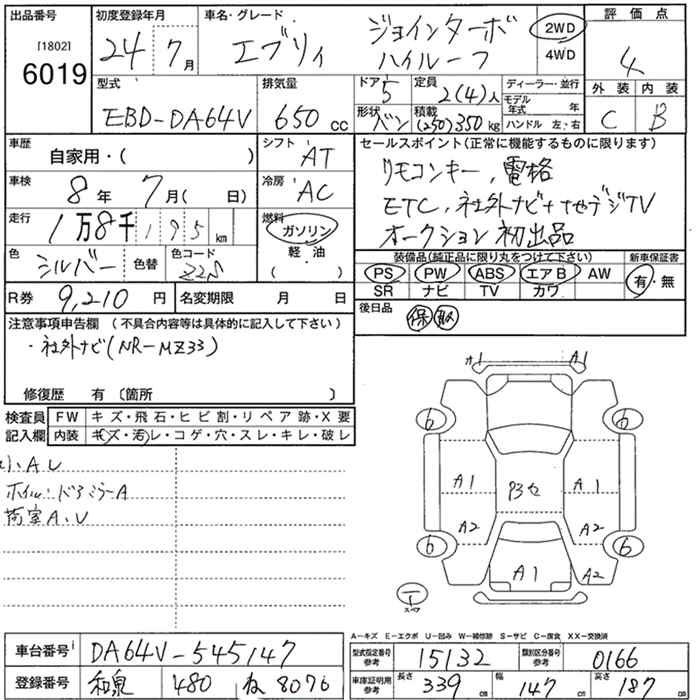 出品番号 初度登録年月 車名・グレード 評価点
[1802] 24年 7月 エブリィ ジョインターボ ハイルーフ 2WD 4WD 4
6019
型式 排気量 ドア 5 定員 2(4)人 ディーラー・並行 外装 内装
EBD-DA64V 650cc 形状 バン 積載 (250)350kg モデル年式 年 C B
ハンドル 左・右
車歴 自家用・( ) シフト AT セールスポイント(正常に機能するものに限ります)
車検 8年 7月( 日) 冷房 AC リモコンキー、電格
走行 1万8千195km 燃料 ガソリン ETC、社外ナビ+地デジTV
軽油 オークション初出品
( )
色 シルバー 色替 色コード Z2S 装備品(純正品に限り丸をつけて下さい) 新車保証書
PS PW ABS エアB AW 有・無
SR ナビ TV カワ
R券 9,210円 名変期限 月 日 後日品 保 取
注意事項申告欄 (不具合内容等は具体的に記入して下さい)
・社外ナビ(NR-MZ33)
修復歴 有 〔箇所 〕
検査員記入欄 FW キズ・飛石・ヒビ割・リペア跡・X要
内装 キズ・汚レ・コゲ・穴・スレ・キレ・破レ
A、U
ホイル・ドアミラーA
荷室A、U
A1
6 6
A1 A1
A2 A2
6 6
A1 A2
スペア
A-キズ E-エクボ U-凹み W-補修跡 S-サビ C-腐食 XX-交換済
車台番号 DA64V-545147 型式指定番号参考 15132 類別区分番号参考 0166
登録番号 和泉 480 ね 8076 車庫証明用参考 長さ 339cm 幅 147cm 高さ 187cm